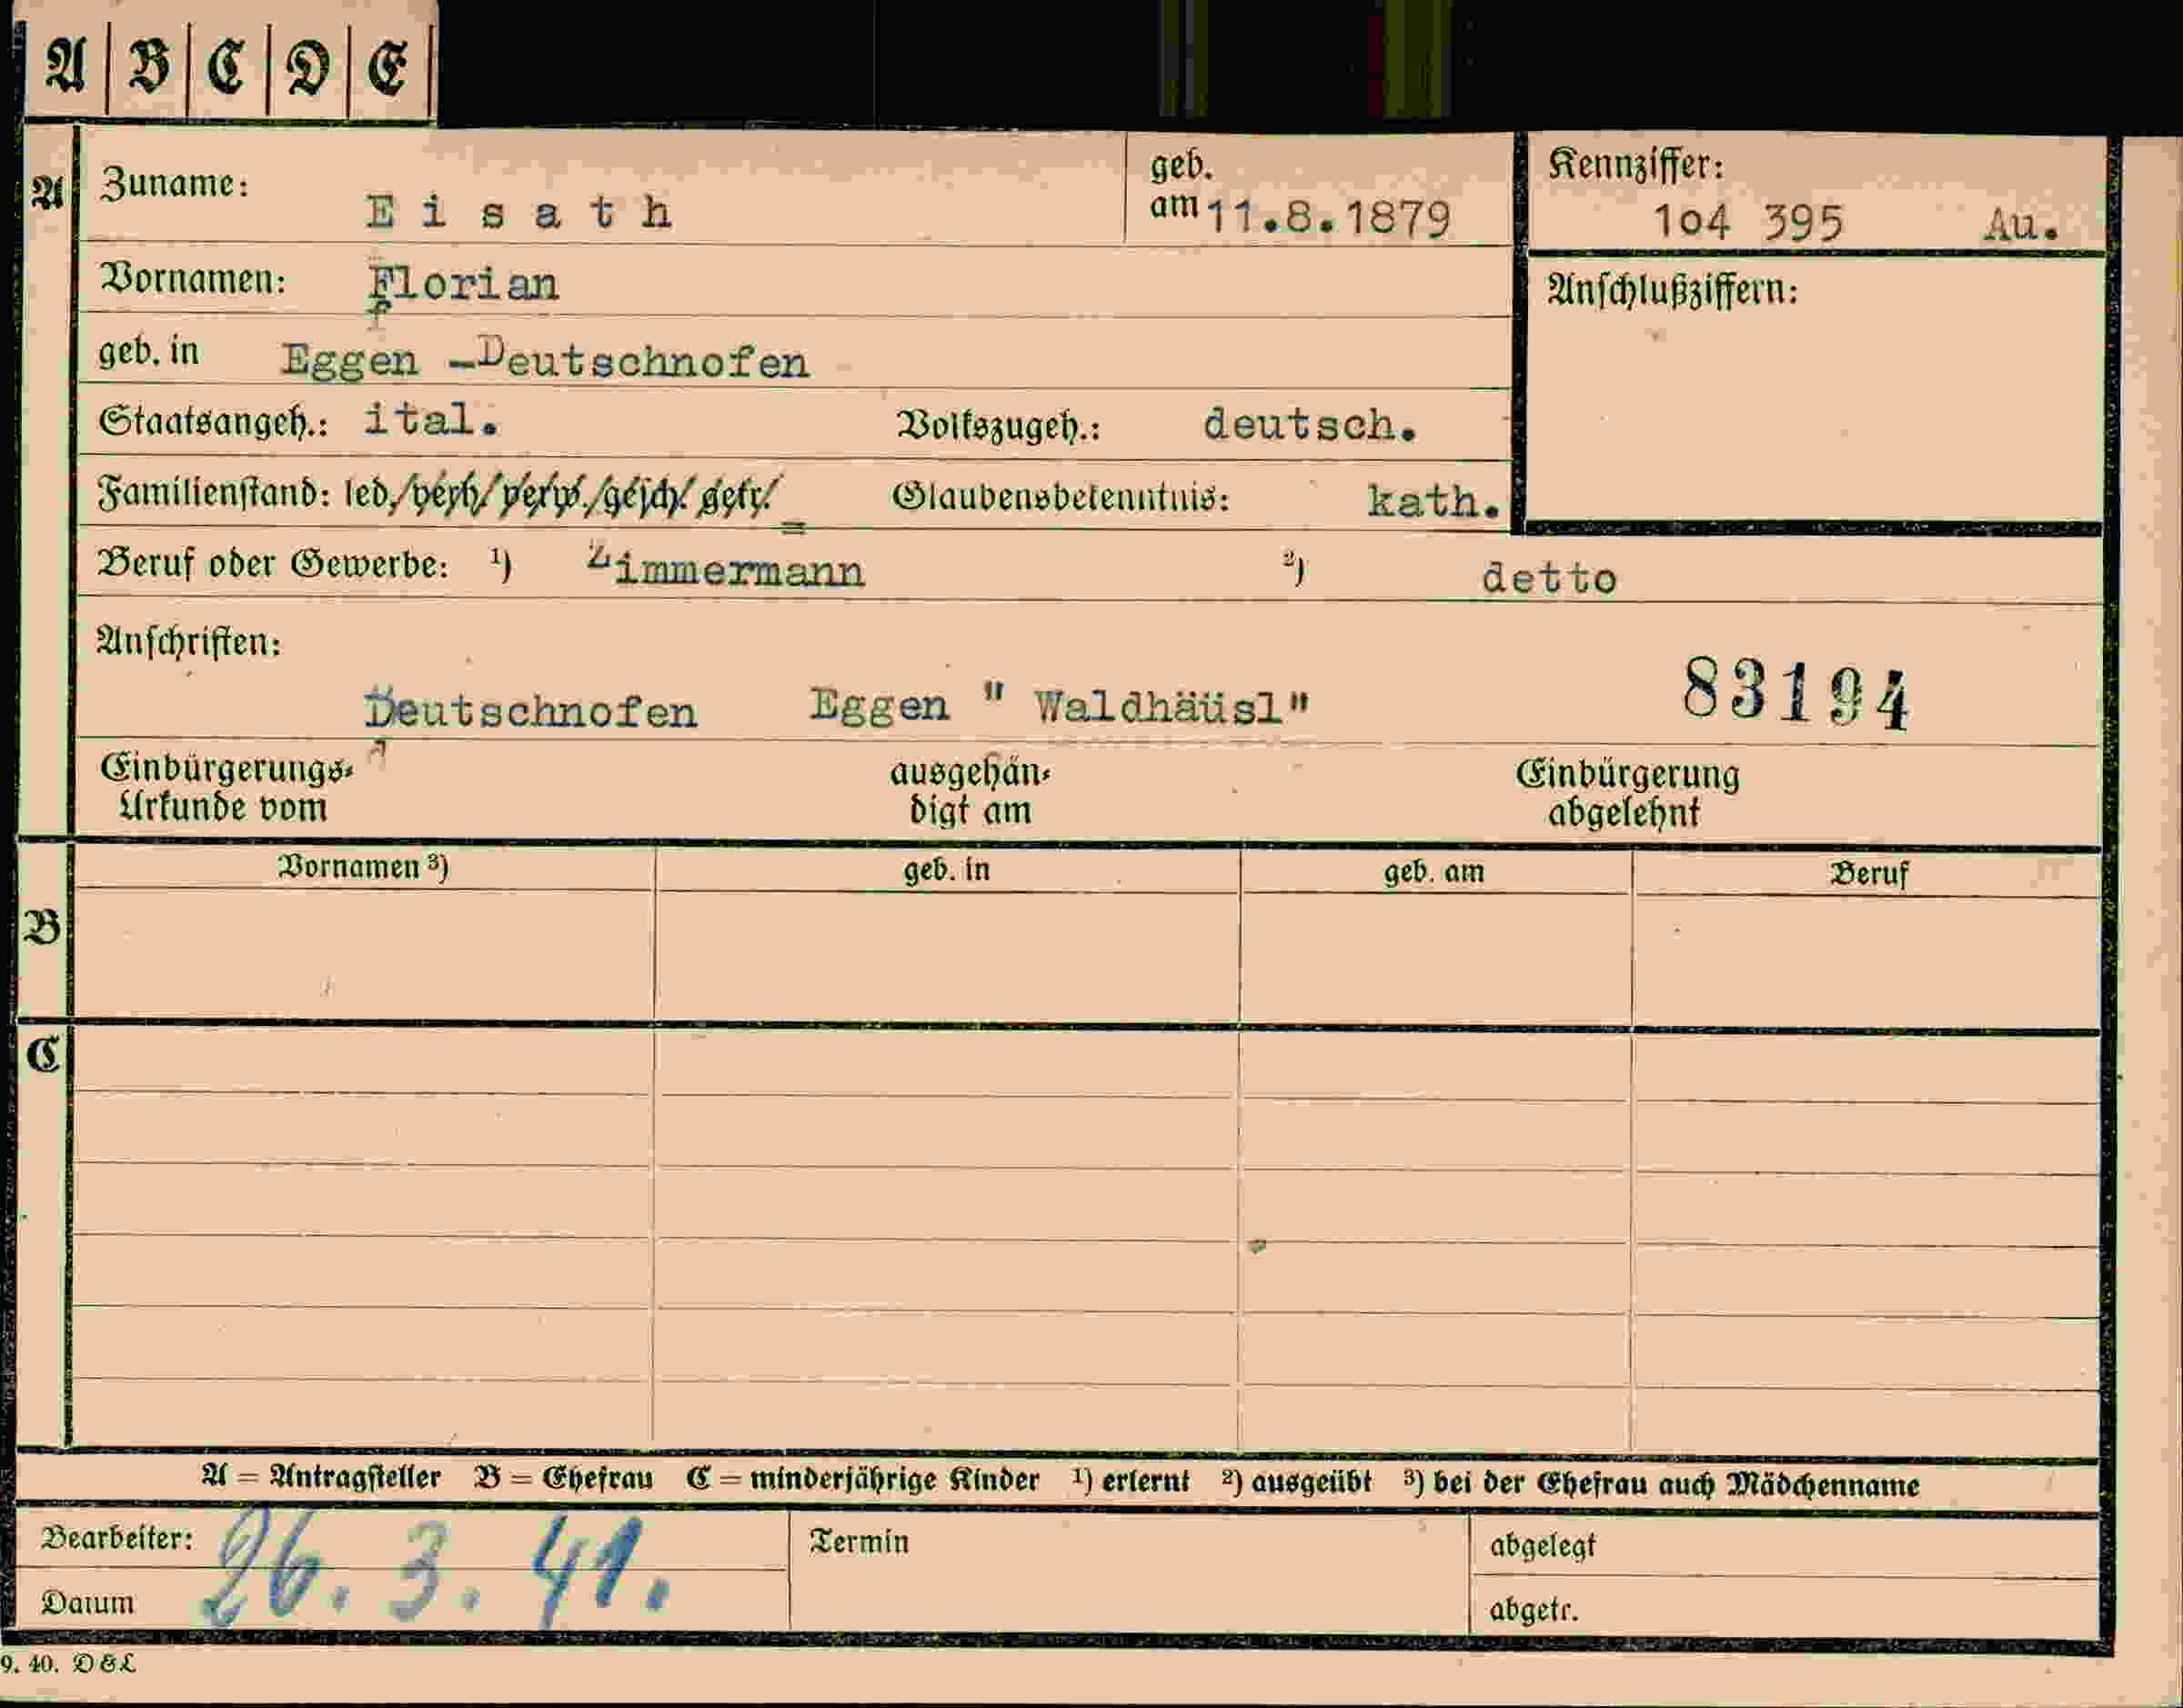 A B C D E
A
Zuname: Eisath
geb. am 11.8.1879
Kennziffer: 1o4 395 Au.
Vornamen: Florian
Anschlußziffern:
geb. in Eggen -Deutschnofen
Staatsangeh.: ital. Volkszugeh.: deutsch.
Familienstand: led./verh./verw./gesch./getr./ = Glaubensbekenntnis: kath.
Beruf oder Gewerbe: 1) Zimmermann 2) detto
Anschriften:
Deutschnofen Eggen " Waldhäusl" 83194
Einbürgerungs- ausgehän- Einbürgerung
Urkunde vom digt am abgelehnt
Vornamen 3) geb. in geb. am Beruf
B
C
A = Antragsteller B = Ehefrau C = minderjährige Kinder 1) erlernt 2) ausgeübt 3) bei der Ehefrau auch Mädchenname
Bearbeiter: Termin abgelegt
Datum 26. 3. 41. abgetr.
9. 40. D & L